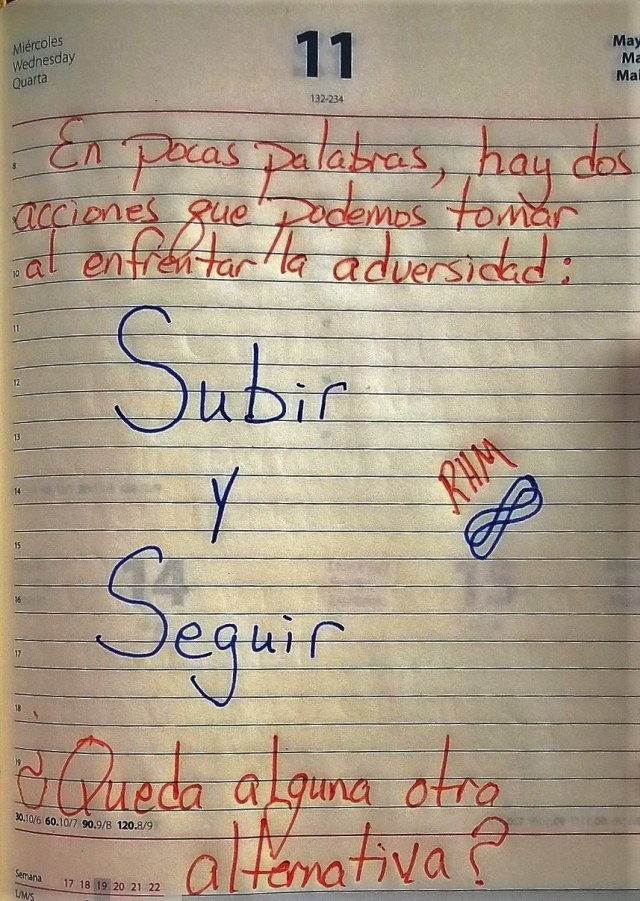 Miércoles
Wednesday
Quarta
11
132-234
May
Ma
Mai
En pocas palabras, hay dos
8
acciones que podemos tomar
al enfrentar la adversidad:
10
11
Subir
12
13
RHM
14
y
15
16
Seguir
17
18
19
¿Queda alguna otra
30.10/6 60.10/7 90.9/8 120.8/9
alternativa?
Semana 17 18 19 20 21 22
L/M/S